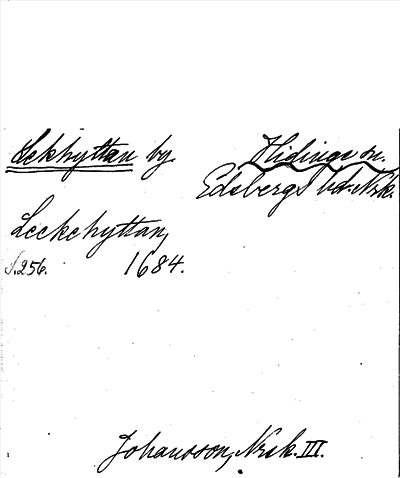 Lekhyttan by. Hidinge sn.
Edsbergs hd. Nrk.
Leckehyttan,
S.256. 1684.
Johansson, Nrk. III.